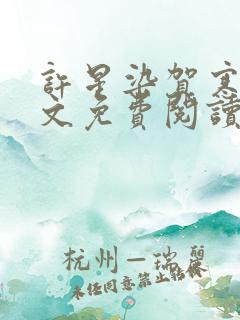 許星染賀寒
文免費閱讀
杭州一瑞麗
未经同意禁止转载